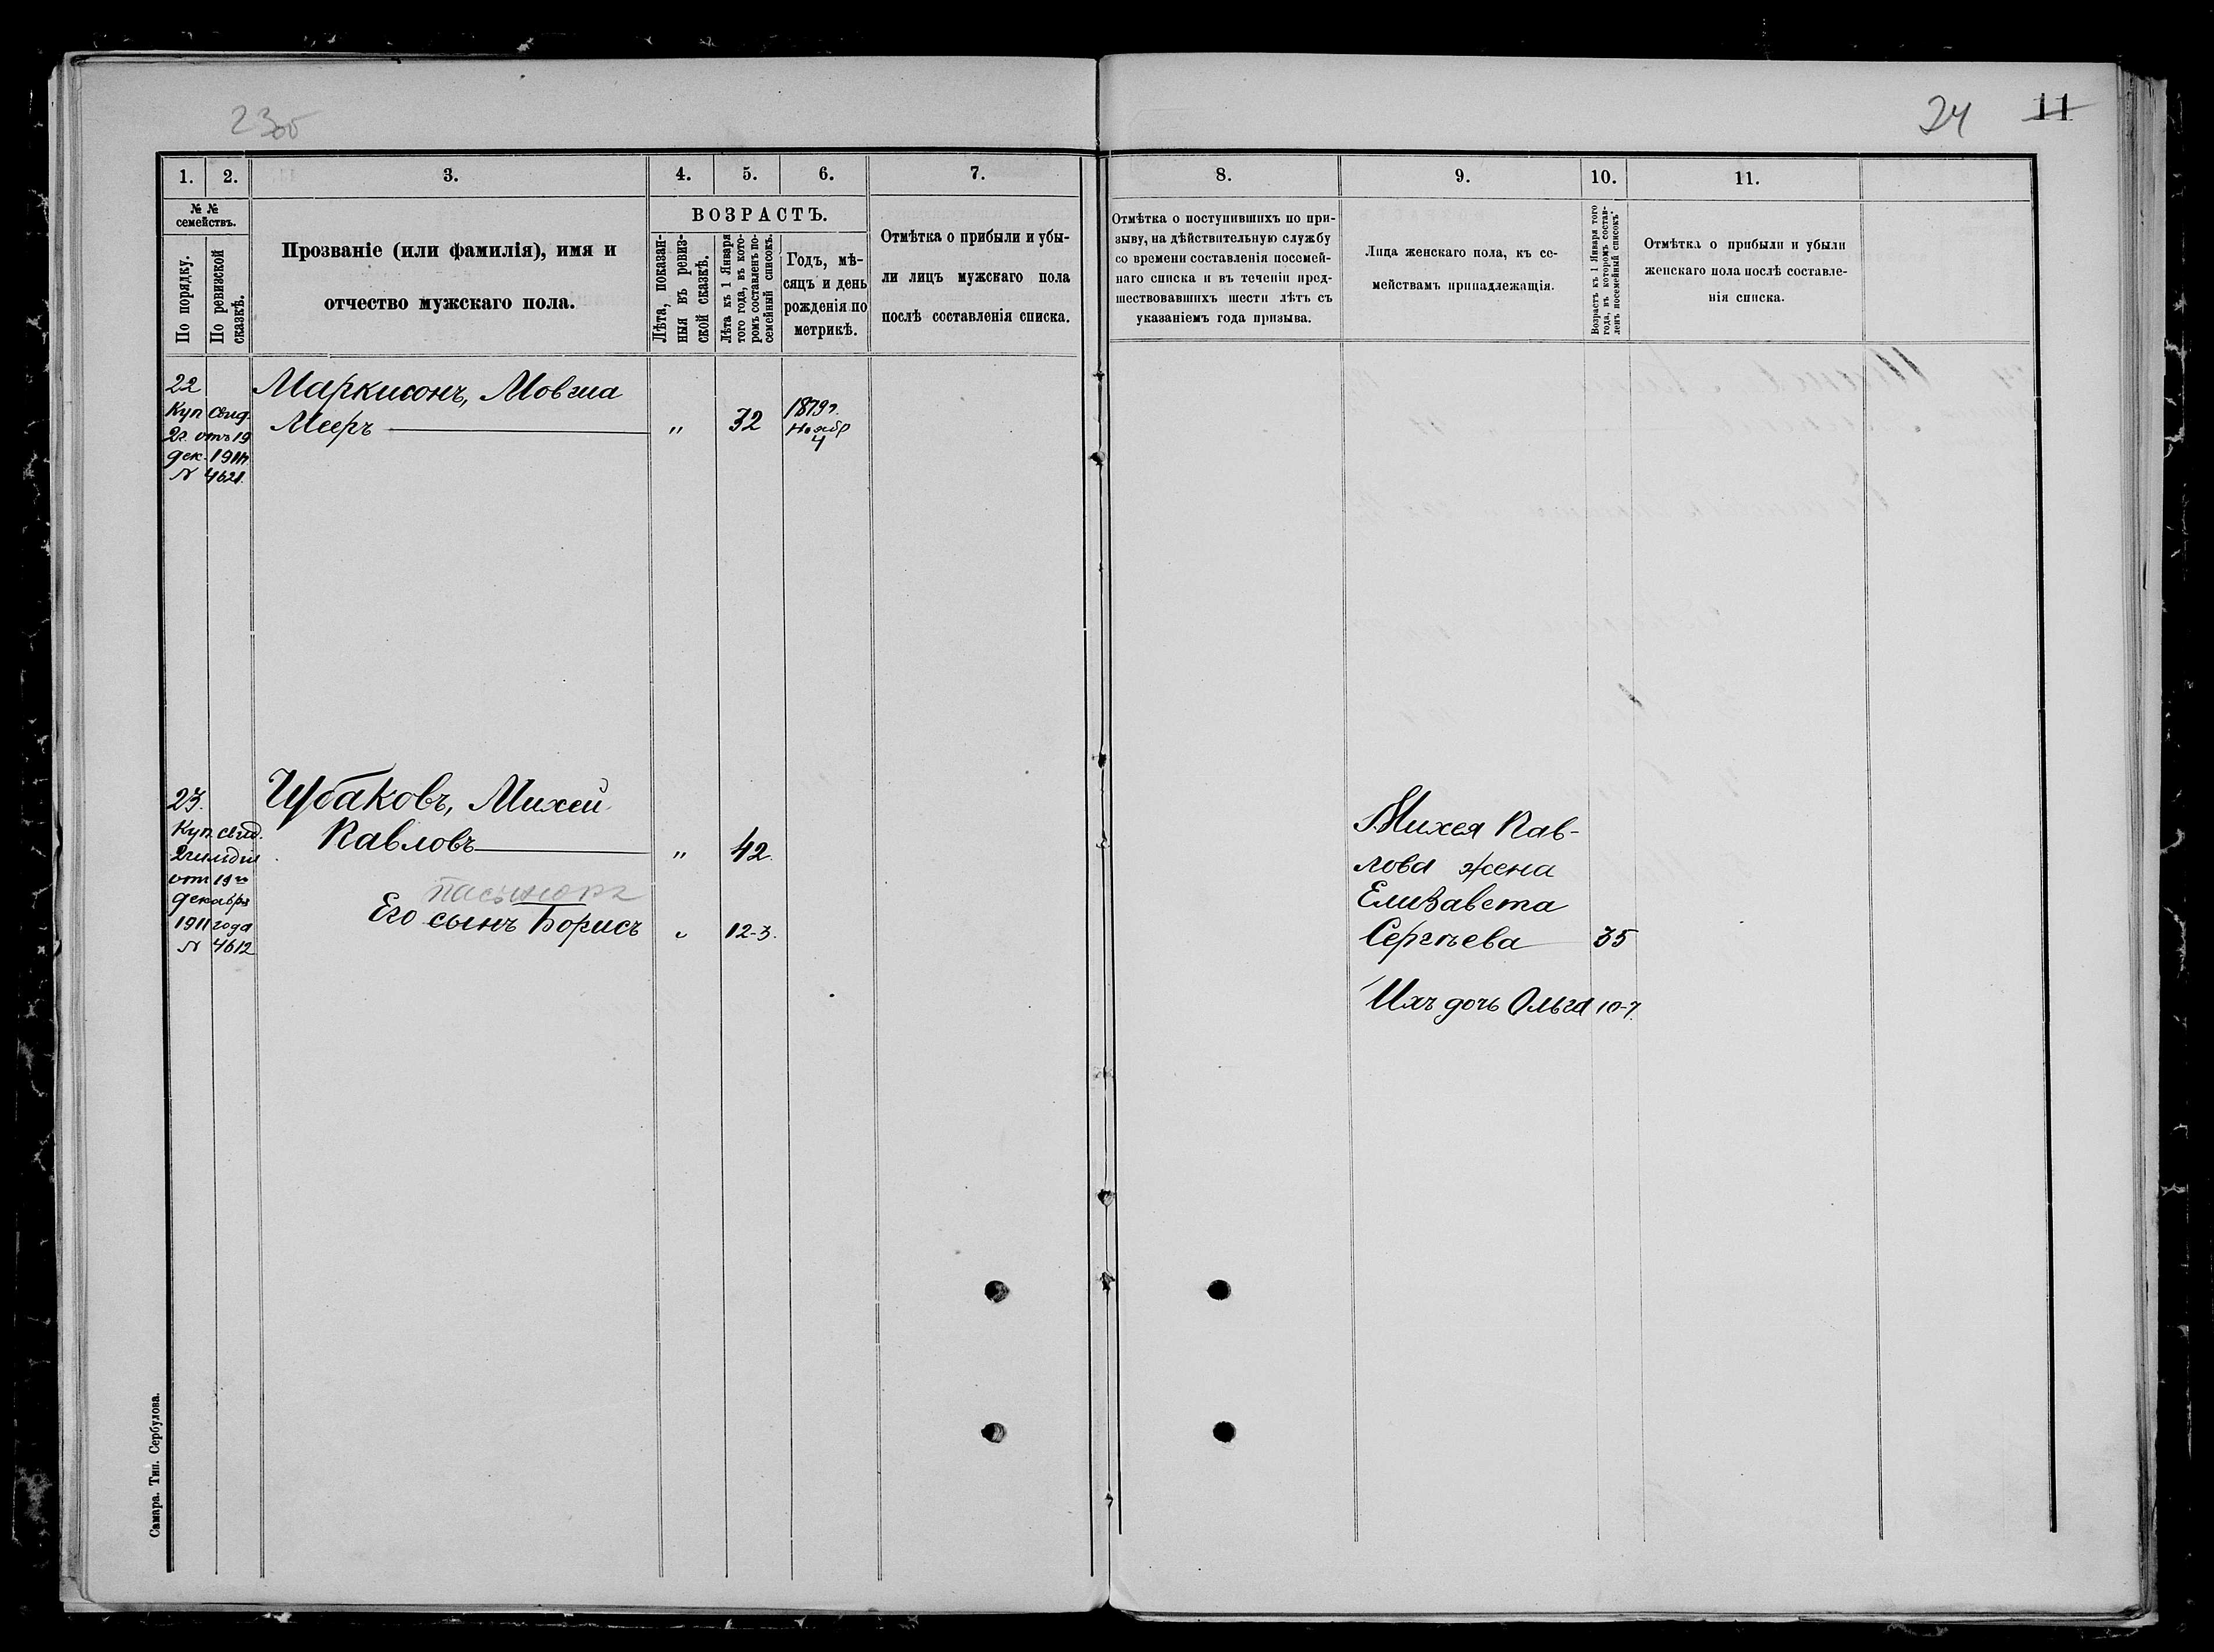 23об
24 11
1. 2. 3. 4. 5. 6. 7.
№ №
семействъ.
По порядку.
По ревизской
сказкѣ.
Прозваніе (или фамилія), имя и
отчество мужскаго пола.
ВОЗРАСТЪ.
Лѣта, показан-
ныя въ ревиз-
ской сказкѣ.
Лѣта къ 1 Января
того года, въ кото-
ромъ составленъ по-
семейный списокъ.
Годъ, мѣ-
сяцъ и день
рожденія по
метрикѣ.
Отмѣтка о прибыли и убы-
ли лицъ мужскаго пола
послѣ составленія списка.
22
Куп. Свид.
2г. отъ 19
дек. 1911
N 4621.
Маркисонъ, Мовша
Мееръ
„ 32
1879г.
Ноябр
4
23.
Куп. свид.
2 гильдіи
отъ 19го
декабря
1911 года
N 4612
Чубаковъ, Михей
Павловъ
„ 42.
пасынокъ
Его сынъ Борисъ
„ 12-3.
Самара. Тип. Сербулова.
8. 9. 10. 11.
Отмѣтка о поступившихъ по при-
зыву, на дѣйствительную службу
со времени составленія посемей-
наго списка и въ теченіи пред-
шествовавшихъ шести лѣтъ съ
указаніемъ года призыва.
Лица женскаго пола, къ се-
мействамъ принадлежащія.
Возрастъ къ 1 Января того
года, въ которомъ состав-
ленъ посемейный списокъ.
Отмѣтка о прибыли и убыли
женскаго пола послѣ составле-
нія списка.
Михея Пав-
лова жена
Елизавета
Сергѣева 35
Ихъ дочь Ольга 10-7.